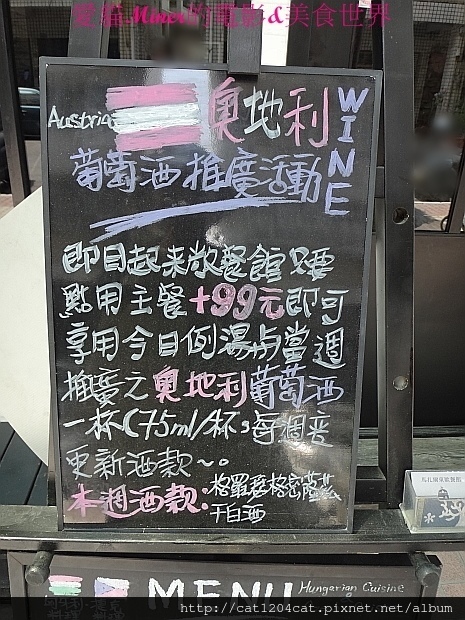 愛貓Miner的電影&美食世界
Austria 奧地利
WINE
葡萄酒推廣活動
即日起來敝餐館只要
點用主餐+99元即可
享用今日例湯與當週
推廣之奧地利葡萄酒
一杯(75ml/杯。每週變
更新酒款~。
本週酒款:格羅瑟格密薩茲
干白酒
MENU Hungarian Cuisine
http://cat1204cat.pixnet.net/album